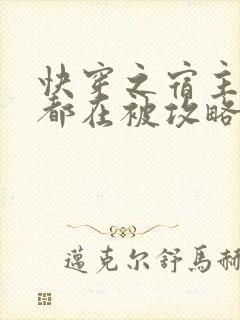 快穿之宿主
都在被攻略
邁克尔舒馬赫